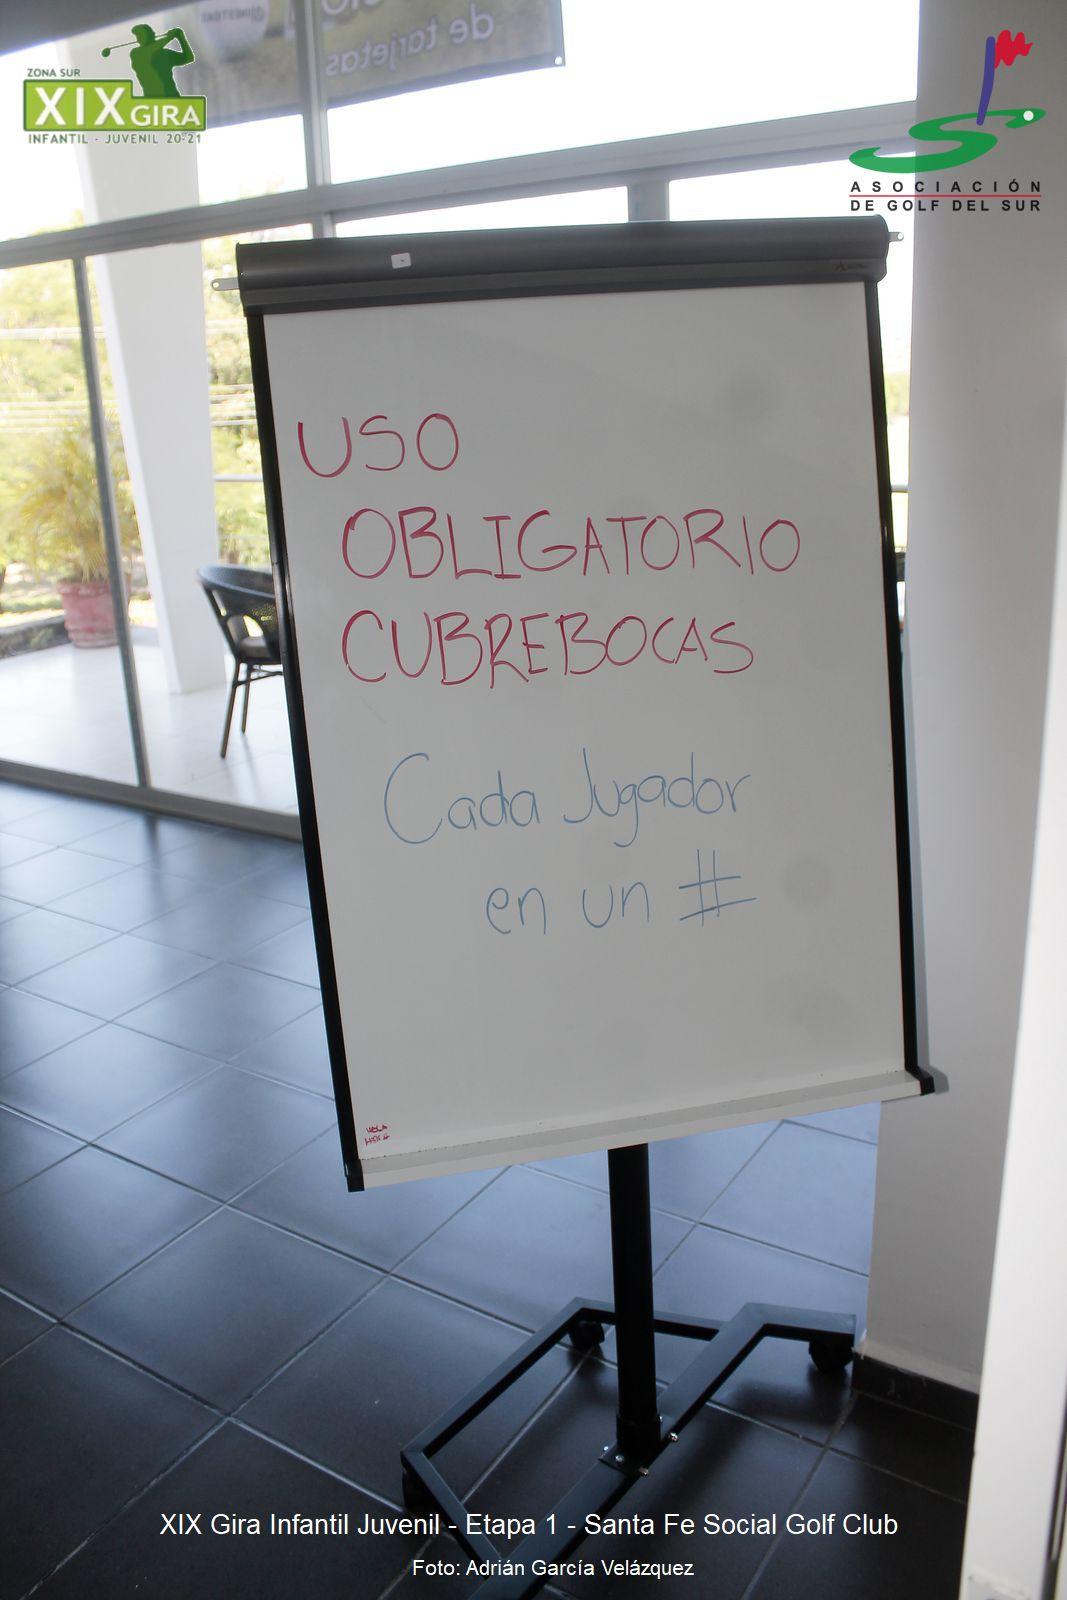 de tarjetas
ZONA SUR
XIX GIRA
INFANTIL - JUVENIL 20-21
ASOCIACIÓN
DE GOLF DEL SUR
USO
OBLIGATORIO
CUBREBOCAS
Cada Jugador
en un #
XIX Gira Infantil Juvenil - Etapa 1 - Santa Fe Social Golf Club
Foto: Adrián García Velázquez